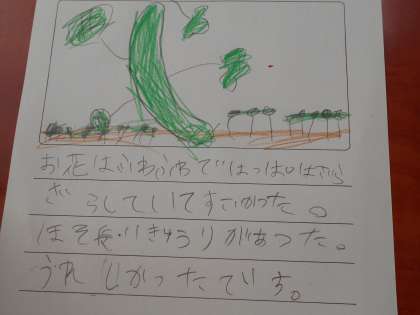 お花はふわふわではっぱはざら
ざらしていてすごかった。
ほそ長いきゅうりがあった。
うれしかったです。